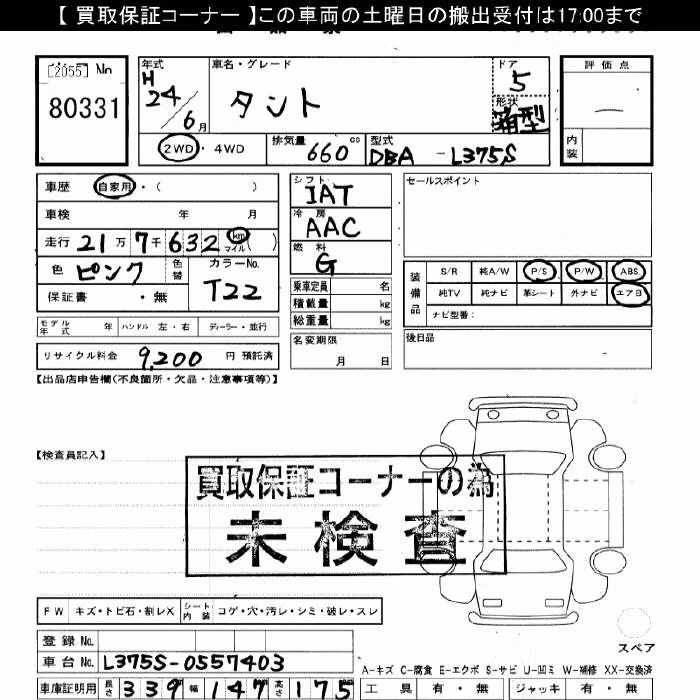 【 買取保証コーナー 】この車両の土曜日の搬出受付は17:00まで
[2055] No
80331
年式 H 24 / 6 月
車名・グレード
タント
ドア 5
形状 箱型
評価点
－
内装
2WD ・ 4WD
排気量 660 cc
型式 DBA - L375S
車歴 自家用・( )
車検 年 月
走行 21万7千632 km マイル ( )
色 ピンク 色替 カラーNo. T22
保証書 ・ 無
モデル年式 年 ハンドル 左・右 ディーラー・並行
リサイクル料金 9,200 円 預託済
シフト IAT
冷房 AAC
燃料 G
乗車定員 名
積載量 kg
総重量 kg
名変期限
月 日
セールスポイント
装備品
S/R 純A/W P/S P/W ABS
純TV 純ナビ 革シート 外ナビ エアB
ナビ型番：
後日品
【出品店申告欄(不良箇所・欠品・注意事項等)】
【検査員記入】
買取保証コーナーの為
未検査
FW キズ・トビ石・割レX シート内装 コゲ・穴・汚レ・シミ・破レ・スレ
登録 No.
車台 No. L375S-0557403
車庫証明用 長さ 339 幅 147 高さ 175
スペア
A-キズ C-腐食 E-エクボ S-サビ U-凹ミ W-補修 XX-交換済
工具 有・無 ジャッキ 有・無